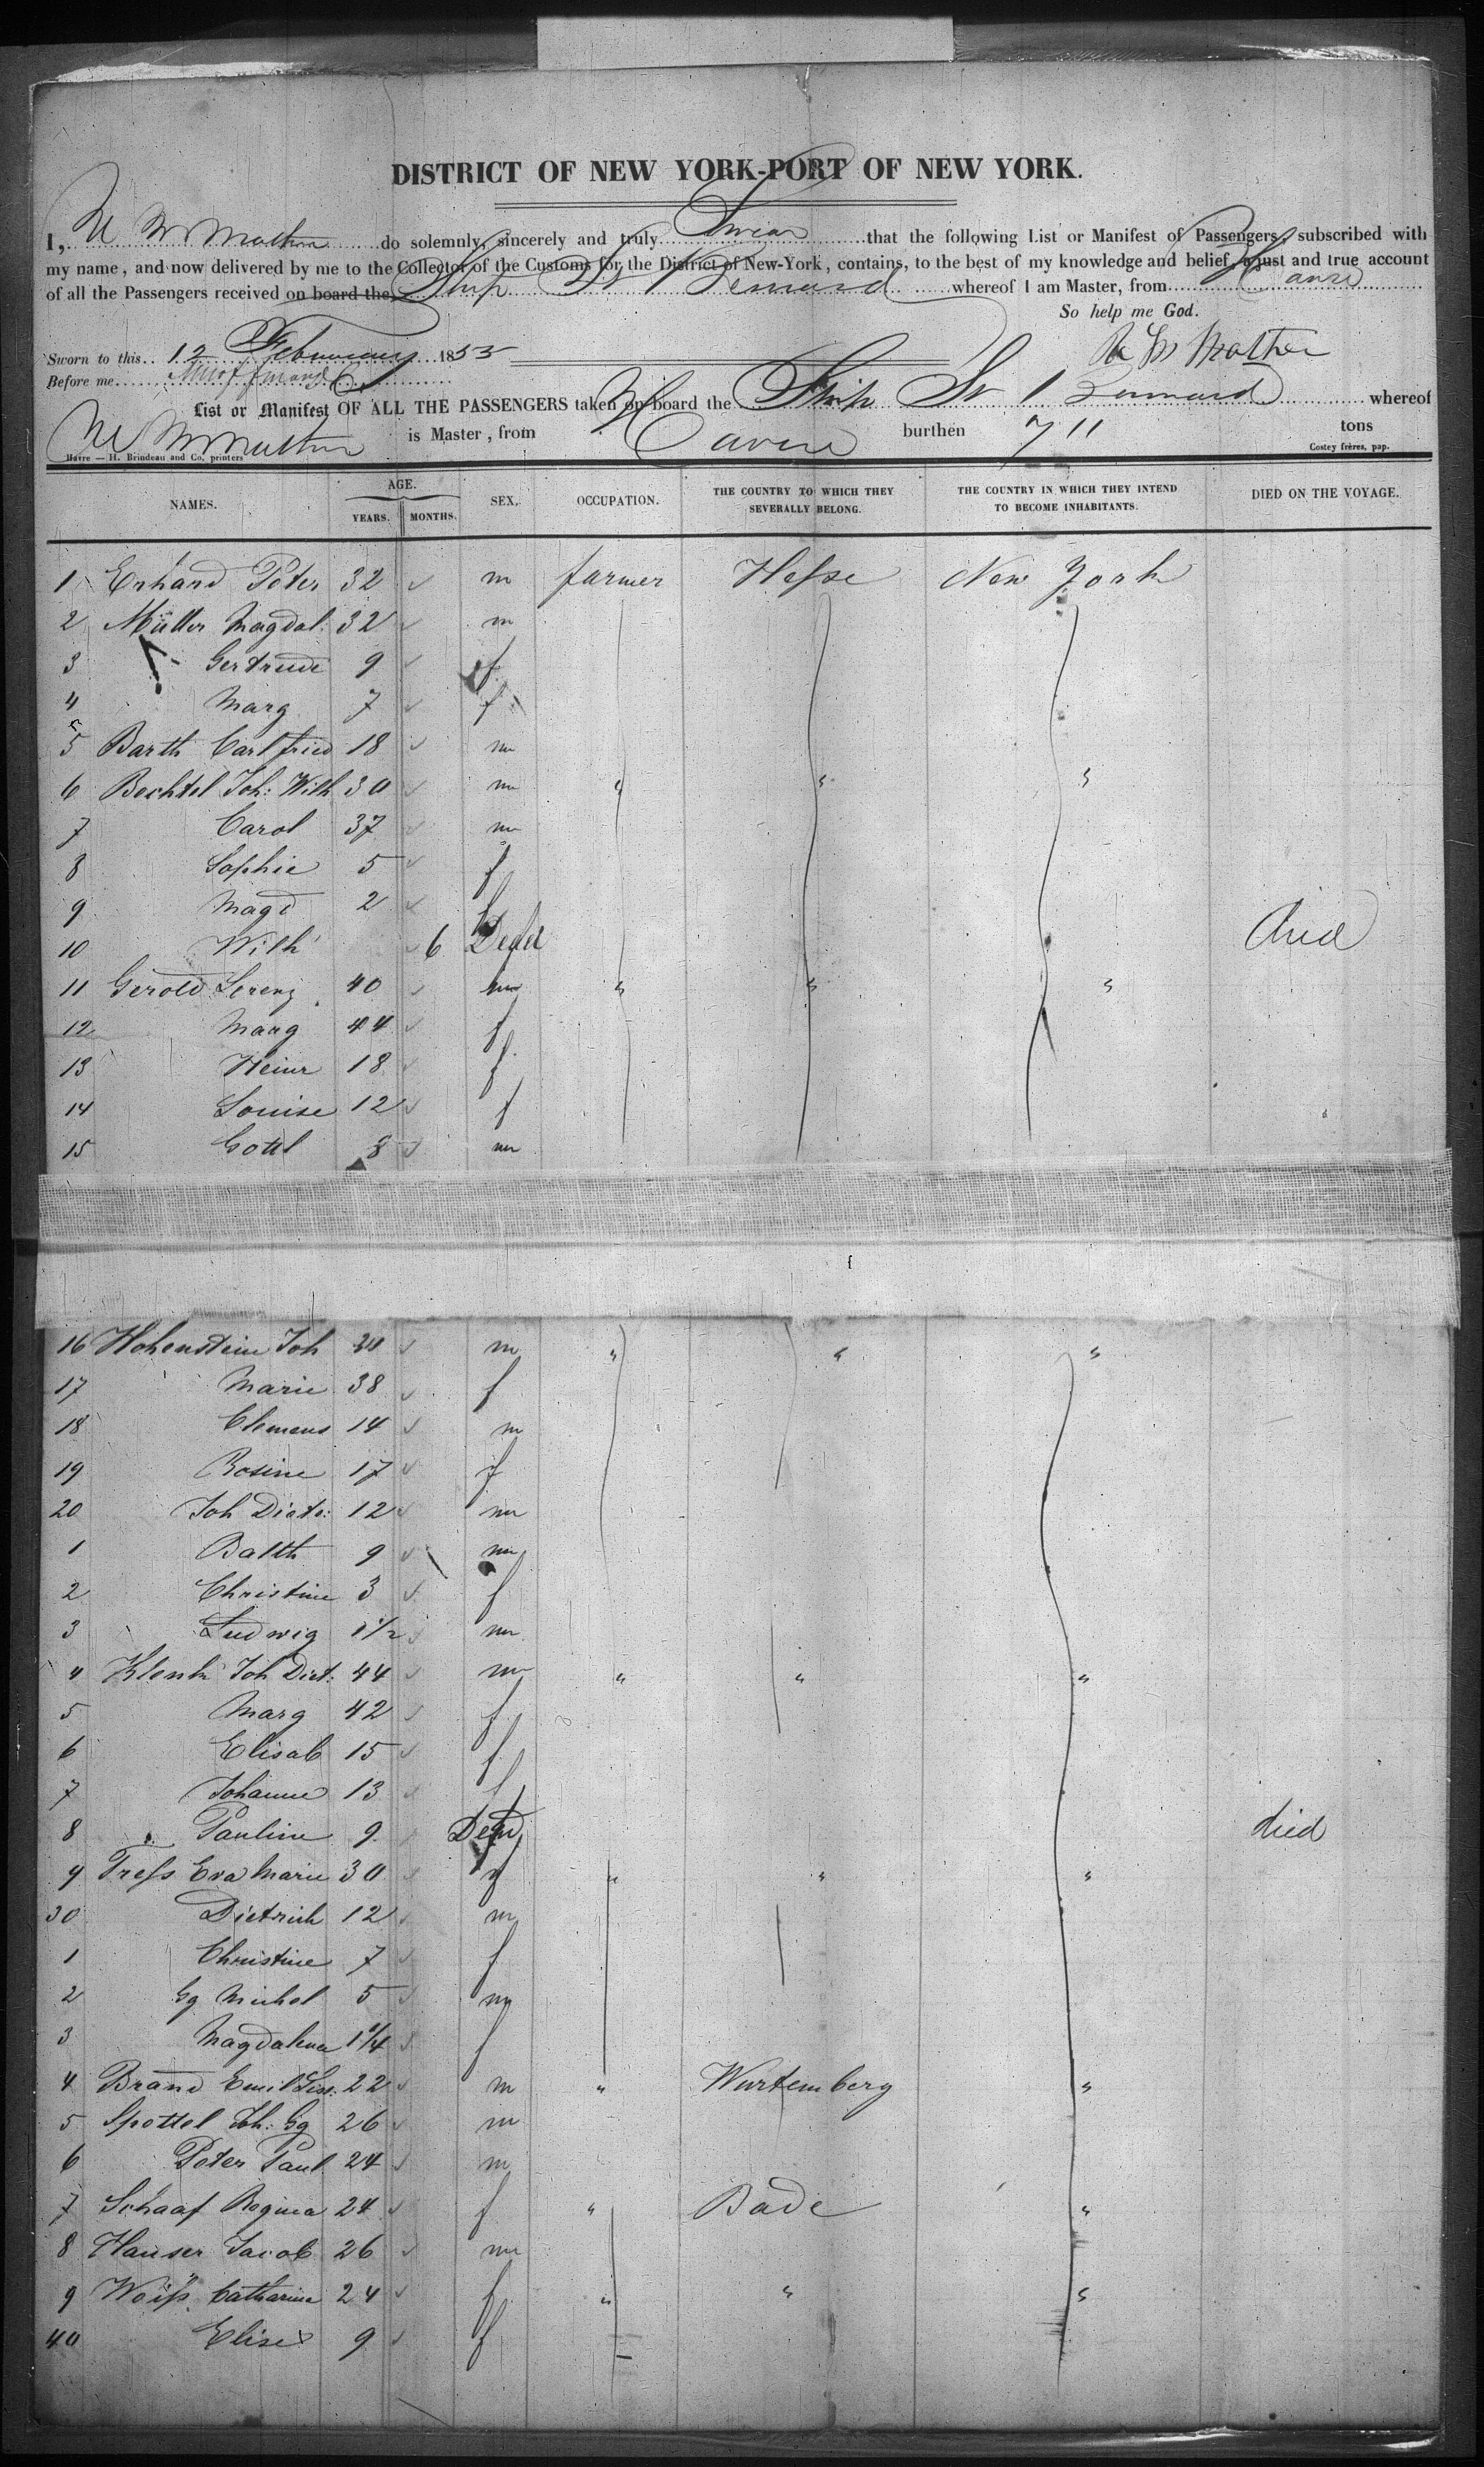 DISTRICT OF NEW YORK-PORT OF NEW YORK.
I, do solemnly, sincerely and truly Swear that the following List or Manifest of Passengers, subscribed with
my name, and now delivered by me to the Collector of the Customs for the District of New-York, contains, to the best of my knowledge and belief, a just and true account
of all the Passengers received on board the Ship St Bernard whereof I am Master, from Havre
So help me God.
Sworn to this 12 February 1855
Before me
List or Manifest OF ALL THE PASSENGERS taken on board the Ship St Bernard whereof
is Master, from Havre burthen 711 tons
Havre — H. Brindeau and Co, printers Costey frères, pap.
NAMES. AGE. YEARS. MONTHS. SEX. OCCUPATION. THE COUNTRY TO WHICH THEY SEVERALLY BELONG. THE COUNTRY IN WHICH THEY INTEND TO BECOME INHABITANTS. DIED ON THE VOYAGE.
1 Erhard Peter 32 m farmer Hesse New York
2 Müller Magdal. 32 m
3 Gertrude 9 f
4 Marg 7 f
5 Barth Carl fried 18 m
6 Bechtel Joh: Wilh 30 m " " "
7 Carol 37 m
8 Sophie 5 f
9 Magd 2 f
10 Wilh 6 Dead died
11 Gerold 40 m " " "
12 Marg 44 f
13 Heinr 18 f
14 Louise 12 f
15 Gottl 8 m
16 Hohenstein Joh m " " "
17 Marie 38 f
18 Clemens 14 m
19 Rosine 17 f
20 Joh Dietr: 12 m
1 Balth 9 m
2 Christine 3 f
3 Ludwig 1 1/2 m
4 Klenk Joh Diet: 44 m " " "
5 Marg 42 f
6 Elisab 15 f
7 Johanne 13 f
8 Pauline 9 Dead died
9 Tress Eva Marie 30 f " " "
30 Dietrich 12 m
1 Christine 7 f
2 Gg Michel 5 m
3 Magdalena 1 1/4 f
4 Brand Emil 22 m " Wurtemberg "
5 Spottel Joh: Gg 26 m
6 Peter Paul 24 m
7 Schaaf Regina 24 f " Bade "
8 Hauser Jacob 26 m
9 Weiss Catharine 24 f " " "
40 Elise 9 f